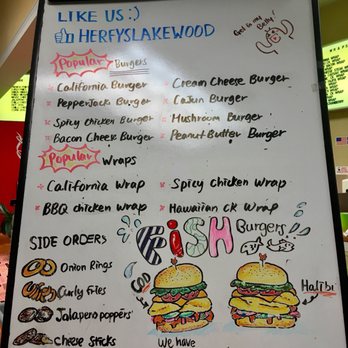 LIKE US :)
HERFYSLAKEWOOD
Get in my Belly!
Popular Burgers
California Burger
Cream Cheese Burger
PepperJack Burger
Cajun Burger
Spicy chicken Burger
Mushroom Burger
Bacon Cheese Burger
Peanut Butter Burger
Popular Wraps
California Wrap
Spicy chicken Wrap
BBQ chicken wrap
Hawaiian CK Wrap
FISH Burgers!!
SIDE ORDERS
Onion Rings
Curly fries
Jalapeno poppers
Cheese Sticks
Halibut
We have